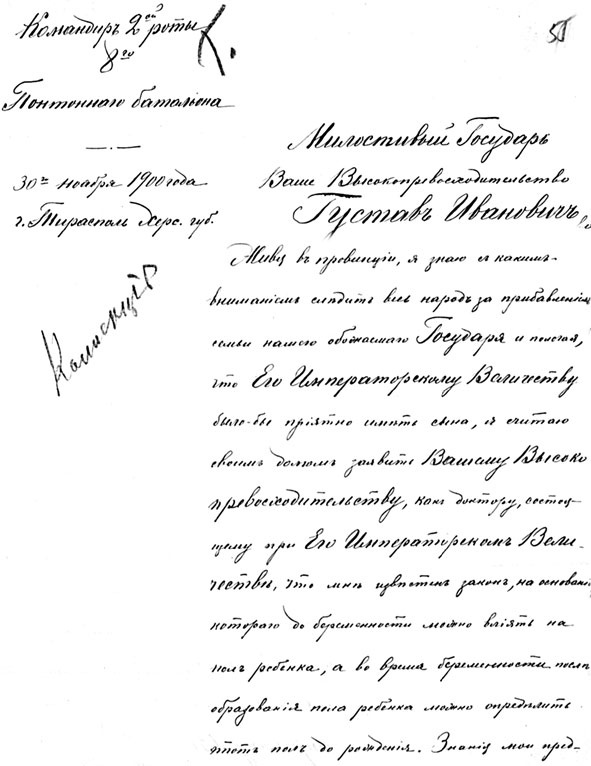 Командиръ 2ой роты
8го
Понтоннаго баталіона
30го ноября 1900 года
г. Тирасполь Херс. губ.
55
Милостивый Государь
Ваше Высокопревосходительство
Густавъ Ивановичъ,
Живя въ провинціи, я знаю съ какимъ
вниманіемъ слѣдитъ весь народъ за прибавленіемъ
семьи нашего обожаемаго Государя и полагая,
что Его Императорскому Величеству
было-бы пріятно имѣть сына, я считаю
своимъ долгомъ заявить Вашему Высоко
превосходительству, какъ доктору, состоя-
щему при Его Императорскомъ Вели-
чествѣ, что мнѣ извѣстенъ законъ, на основаніи
котораго до беременности можно вліять на
полъ ребенка, а во время беременности послѣ
образованія пола ребенка можно опредѣлить
этотъ полъ до рожденія. Знанія мои пред-